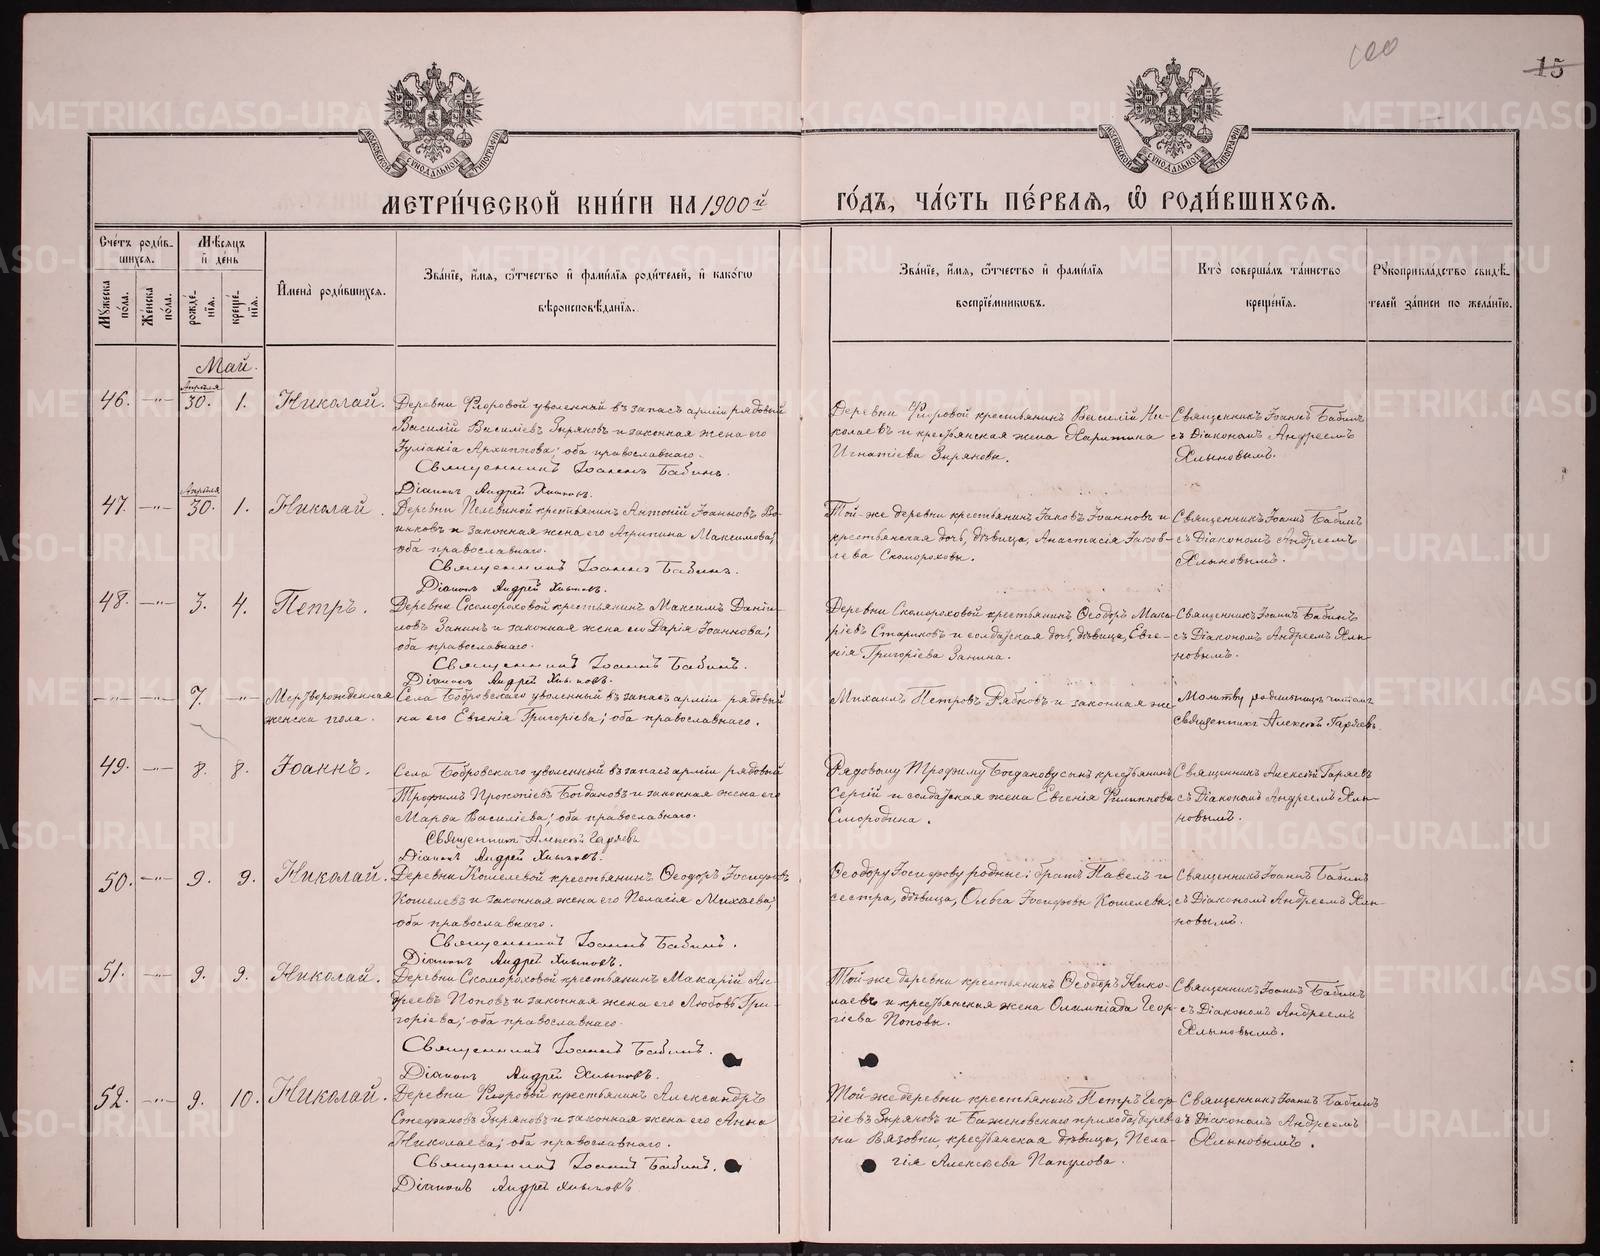 100
15
МОСКОВСКОЙ СѴНОДАЛЬНОЙ ТИПОГРАФІИ
МОСКОВСКОЙ СѴНОДАЛЬНОЙ ТИПОГРАФІИ
МЕТРИ́ЧЕСКОЙ КНИ́ГИ НА 1900й ГО́ДЪ, ЧА́СТЬ ПЕ́РВАѦ, Ѡ҆ РОДИ́ВШИХСѦ.
Сче́тъ роди́в-
шихсѧ.
Мꙋ́жеска по́ла.
Же́нска по́ла.
Мѣ́сѧцъ
и҆ де́нь
рожде́-
нїѧ.
креще́-
нїѧ.
И҆мена̀ роди́вшихсѧ.
Зва́нїе, и҆́мѧ, ѻ҆́тчество и҆ фами́лїѧ роди́телей, и҆ како́гѡ
вѣроисповѣ́данїѧ.
Зва́нїе, и҆́мѧ, ѻ҆́тчество и҆ фами́лїѧ
воспрїе́мникѡвъ.
Кто̀ соверша́лъ та́инство
креще́нїѧ.
Рꙋкоприкла́дство свидѣ́-
телей за́писи по жела́нїю.
Май.
46. —"— Апрѣля 30. 1. Николай.
Деревни Флоровой уволенный въ запасъ арміи рядовый
Василій Василіевъ Зыряновъ и законная жена его
Іуліанія Архиппова; оба православнаго.
Священникъ Іоаннъ Бабинъ.
Діаконъ Андрей Хлыновъ.
Деревни Флоровой крестьянинъ Василій Ни-
колаевъ и крестьянская жена Харитина
Игнатіева Зыряновы.
Священникъ Іоаннъ Бабинъ
съ Діакономъ Андреемъ
Хлыновымъ.
47. —"— Апрѣля 30. 1. Николай.
Деревни Пелевиной крестьянинъ Антоній Іоанновъ Во-
инковъ и законная жена его Агрипина Максимова;
оба православнаго.
Священникъ Іоаннъ Бабинъ.
Діаконъ Андрей Хлыновъ.
Той-же деревни крестьянинъ Іаковъ Іоанновъ и
крестьянская дочь, дѣвица, Анастасія Іаков-
лева Скомороховы.
Священникъ Іоаннъ Бабинъ
съ Діакономъ Андреемъ
Хлыновымъ.
48. —"— 3. 4. Петръ.
Деревни Скомороховой крестьянинъ Максимъ Даніи-
ловъ Занинъ и законная жена его Дарія Іоаннова;
оба православнаго.
Священникъ Іоаннъ Бабинъ.
Діаконъ Андрей Хлыновъ.
Деревни Скомороховой крестьянинъ Ѳеодоръ Мака-
ріевъ Стариковъ и солдатская дочь, дѣвица, Евге-
нія Григоріева Занина.
Священникъ Іоаннъ Бабинъ
съ Діакономъ Андреемъ Хлы-
новымъ.
—"— —"— 7. —"— Мертворожденная
женска пола.
Села Бобровскаго уволенный въ запасъ арміи рядовый
Михаилъ Петровъ Рябковъ и законная же-
на его Евгенія Григоріева; оба православнаго.
Молитву родильницѣ читалъ
священникъ Алексѣй Гаряевъ.
49. —"— 8. 8. Іоаннъ.
Села Бобровскаго уволенный въ запасъ арміи рядовый
Трофимъ Прокпіевъ Богдановъ и законная жена его
Марѳа Василіева; оба православнаго.
Священникъ Алексѣй Гаряевъ
Діаконъ Андрей Хлыновъ.
Рядовому Трофиму Богданову сынъ крестьянинъ
Сергій и солдатская жена Евгенія Филиппова
Смородина.
Священникъ Алексѣй Гаряевъ
съ Діакономъ Андреемъ Хлы-
новымъ.
50. —"— 9. 9. Николай.
Деревни Кошелевой крестьянинъ Ѳеодоръ Іосифовъ
Кошелевъ и законная жена его Пелагія Михаева;
оба православнаго.
Священникъ Іоаннъ Бабинъ.
Діаконъ Андрей Хлыновъ.
Ѳеодору Іосифову родные: братъ Павелъ и
сестра, дѣвица, Ольга Іосифовы Кошелевы.
Священникъ Іоаннъ Бабинъ
съ Діакономъ Андреемъ Хлы-
новымъ.
51. —"— 9. 9. Николай.
Деревни Скомороховой крестьянинъ Макарій Ан-
дреевъ Поповъ и законная жена его Любовь Гри-
горіева; оба православнаго.
Священникъ Іоаннъ Бабинъ.
Діаконъ Андрей Хлыновъ.
Той-же деревни крестьянинъ Ѳеодоръ Нико-
лаевъ и крестьянская жена Олимпіада Геор-
гіева Поповы.
Священникъ Іоаннъ Бабинъ
съ Діакономъ Андреемъ
Хлыновымъ.
52. —"— 9. 10. Николай.
Деревни Флоровой крестьянинъ Александръ
Стефановъ Зыряновъ и законная жена его Анна
Николаева; оба православнаго.
Священникъ Іоаннъ Бабинъ.
Діаконъ Андрей Хлыновъ.
Той-же деревни крестьянинъ Петръ Геор-
гіевъ Зыряновъ и Баженовскаго прихода, дерев-
ни Вязовки, крестьянская дѣвица, Пела-
гія Алексѣева Папулова.
Священникъ Іоаннъ Бабинъ
съ Діакономъ Андреемъ
Хлыновымъ.
METRIKI.GASO-URAL.RU